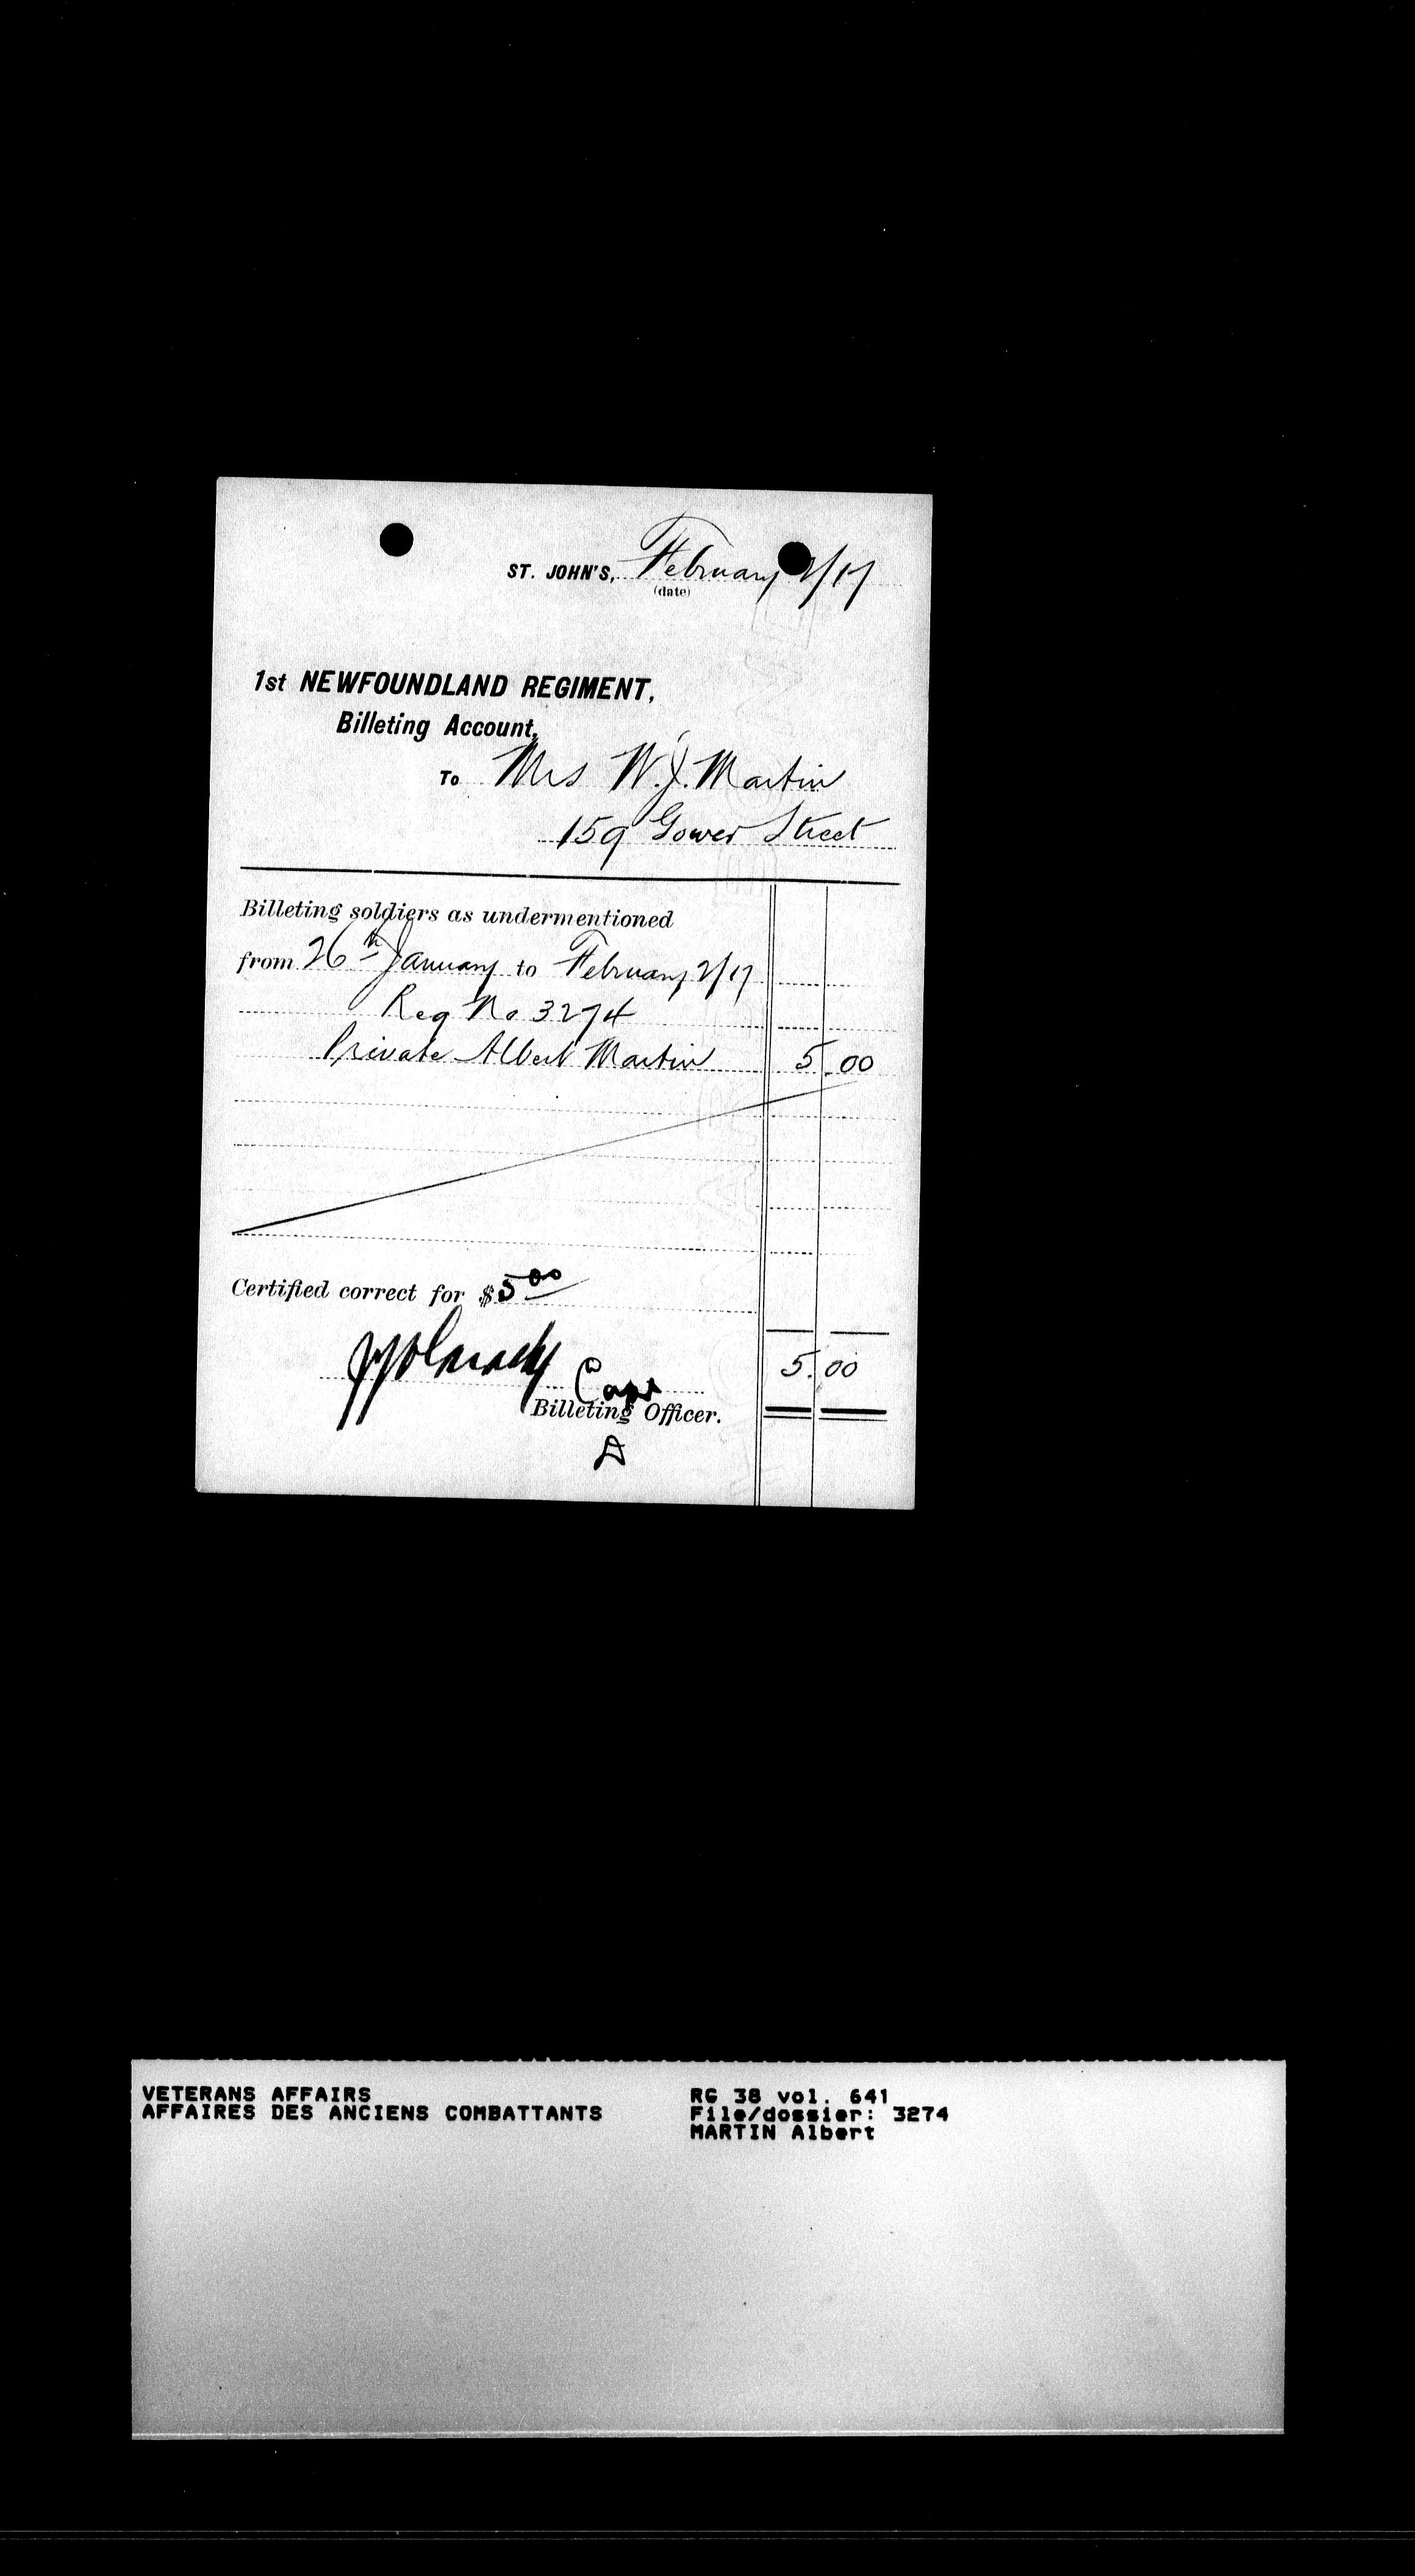 ST. JOHN'S, February 2/17
(date)
1st NEWFOUNDLAND REGIMENT,
Billeting Account,
To Mrs W. J. Martin
159 Gower Street
Billeting soldiers as undermentioned
from 26th January to February 2/17
Reg No 3274
Private Albert Martin 5.00
Certified correct for $5.00
Capt 5.00
Billeting Officer.
VETERANS AFFAIRS RG 38 vol. 641
AFFAIRES DES ANCIENS COMBATTANTS File/dossier: 3274
MARTIN Albert